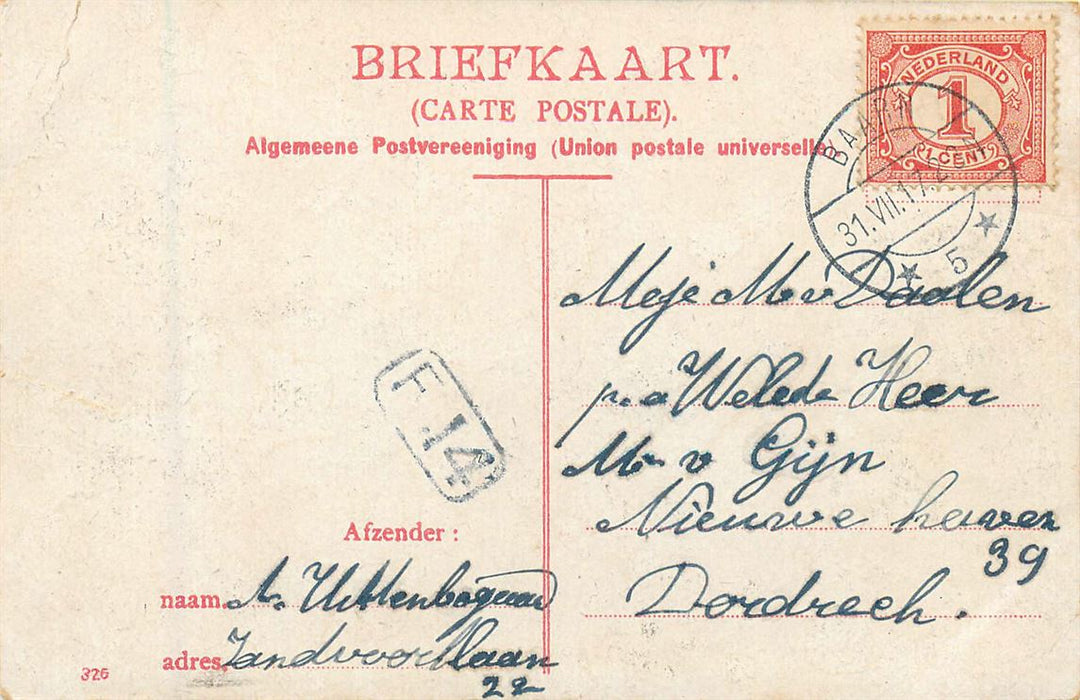 BRIEFKAART.
(CARTE POSTALE).
Algemeene Postvereeniging (Union postale universelle)
NEDERLAND
1
1 CENT
BAARN
31.VII.17.
5
Meje M v Daalen
p.a Weled Heer
Mr v Gijn
Nieuwe haven
39
Dordrech.
F 14
Afzender :
naam. A. Uittenbogaard
adres. Zandvoortlaan
22
326